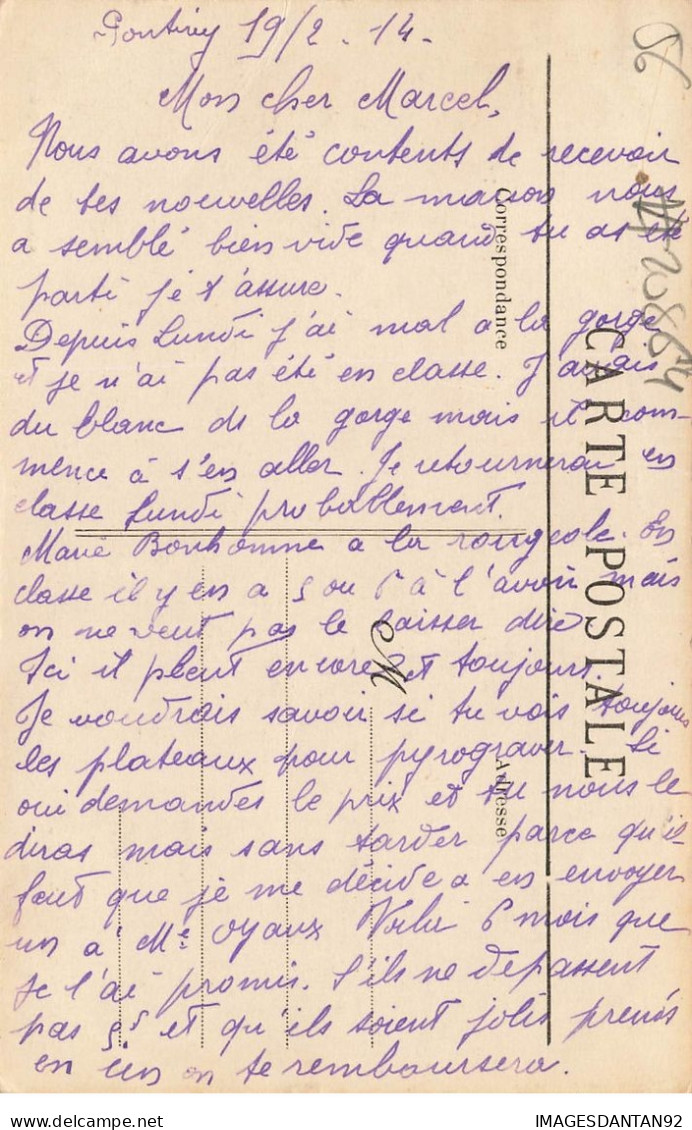 Pontivy 19/2 - 14 -
Mon cher Marcel,
Nous avons été contents de recevoir
de tes nouvelles. La maison nous
a semblé bien vide quand tu as été
parti je t'assure.
Depuis Lundi j'ai mal a la gorge
et je n'ai pas été en classe. J'avais
du blanc de la gorge mais il com-
mence à s'en aller. Je retournerai en
classe Lundi probablement.
Marie Bonhomme a la rougeole. En
classe il y en a 5 ou 6 à l'avoir mais
on ne veut pas le laisser dire
Ici il pleut encore et toujours.
Je voudrais savoir si tu vois toujours
les plateaux pour pyrograver. Si
oui demandes le prix et tu nous le
diras mais sans tarder parce qu'il
faut que je me décide a en envoyer
un à Me Oyaux Voilà 6 mois que
je l'ai promis. S'ils ne dépassent
pas 5f et qu'ils soient jolis prends
en un on te remboursera.
CARTE POSTALE
Correspondance
Adresse
M
56
208674
IMAGESDANTAN92